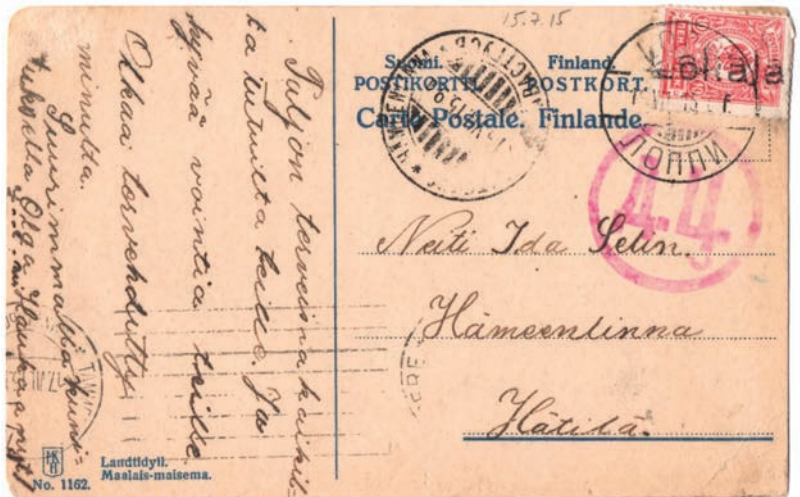 15.7.15
Suomi. Finland.
POSTIKORTTI. POSTKORT.
Carte Postale. Finlande.
Lohaja
ЛОППИ
4.Ц.
Neiti Ida Selin.
Hämeenlinna
Hätilä.
Paljon terveisiä kaikil=
ta tutuilta teille. Ja
hyvää vointia teille
Olkaa tervehdytty
minulta.
Suurimmalla kunni=
tuksella Olga
Landtidyll.
Maalais-maisema.
No. 1162.